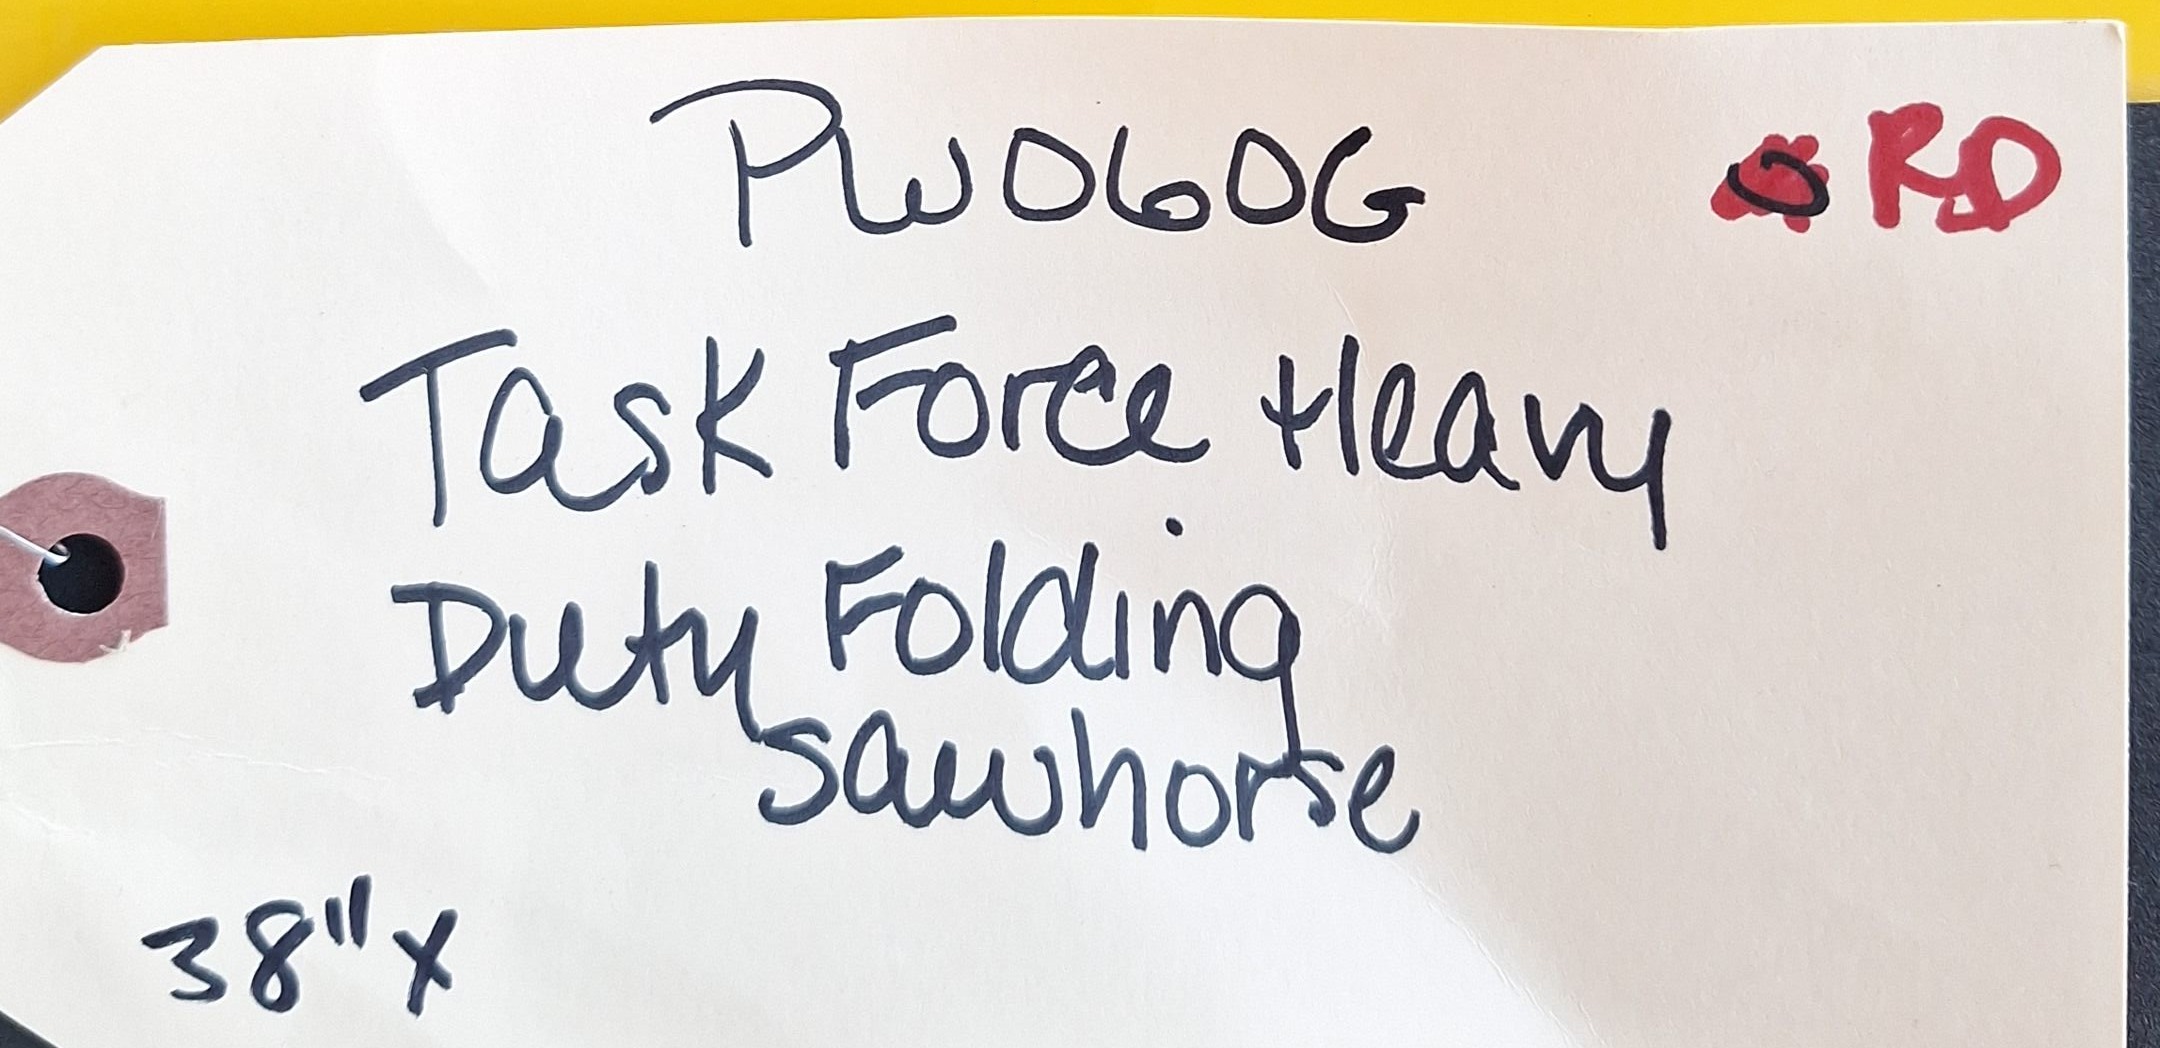 PW060G RD
Task Force Heavy
Duty Folding
sawhorse
38" x